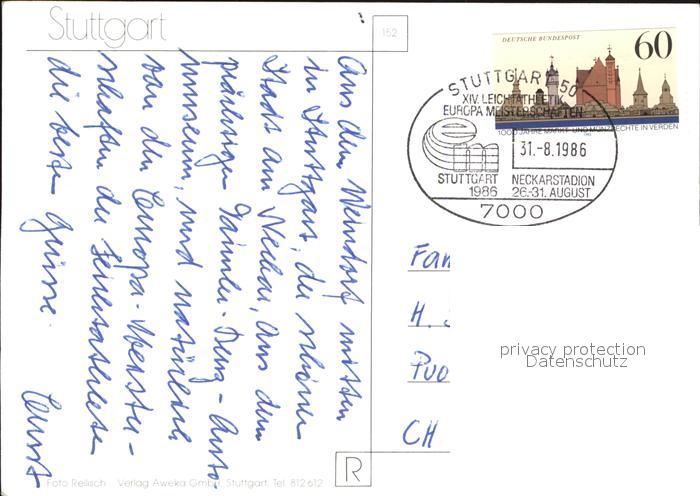 Stuttgart
152
Aus dem Weindorf mitten
in Stuttgart, der schönen
Stadt am Neckar, aus dem
prächtigen Daimler-Benz-Auto-
museum, und natürlich
von den Europa-Meister-
schaften der Leichtathleten
die besten Grüsse.
Ernst
DEUTSCHE BUNDESPOST
60
1000 JAHRE MARKT- UND MÜNZRECHTE IN VERDEN
STUTTGART 50
XIV. LEICHTATHLETIK
EUROPA MEISTERSCHAFTEN
31.-8.1986
STUTTGART
1986
NECKARSTADION
26.-31. AUGUST
7000
Fam
H. S
Puo
CH
privacy protection
Datenschutz
R
Foto Reilisch Verlag Aweka GmbH, Stuttgart, Tel. 812 612